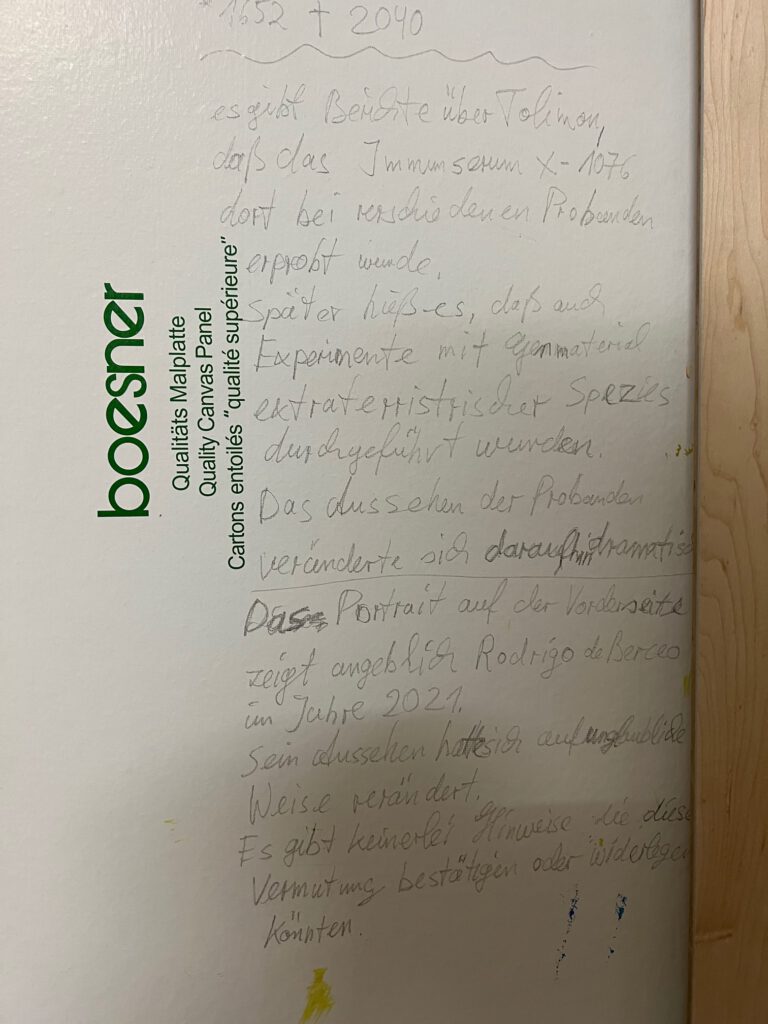 * 1652 † 2040
es gibt Berichte über Tolimon,
daß das Immunserum X-1076
dort bei verschiedenen Probanden
erprobt wurde.
Später hieß es, daß auch
Experimente mit Genmaterial
extraterristrischer Spezies
durchgeführt wurden.
Das Aussehen der Probanden
veränderte sich daraufhin dramatisch
Das Portrait auf der Vorderseite
zeigt angeblich Rodrigo de Berceo
im Jahre 2021.
Sein Aussehen hatte sich auf unglaubliche
Weise verändert.
Es gibt keinerlei Hinweise die diese
Vermutung bestätigen oder widerlegen
könnten.
boesner
Qualitäts Malplatte
Quality Canvas Panel
Cartons entoilés "qualité supérieure"